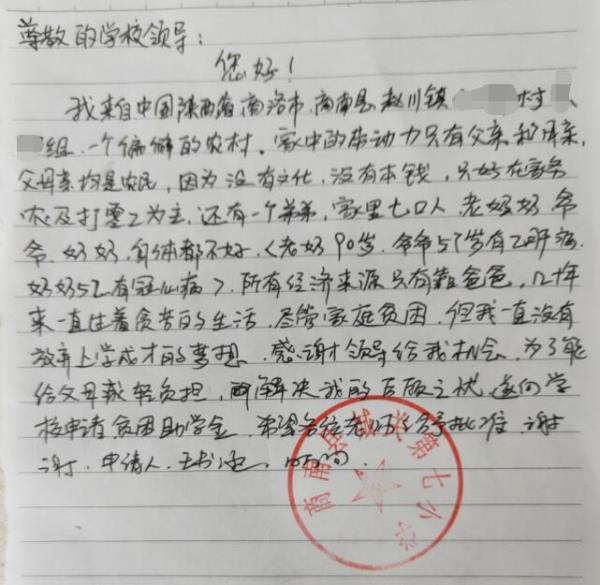 尊敬的学校领导:
您好!
我来自中国陕西省商洛市商南县赵川镇 村
组,一个偏僻的农村。家中的劳动力只有父亲和母亲,
父母亲均是农民,因为没有文化,没有本钱,只好在家务
农及打零工为主,还有一个弟弟,家里七口人,老奶奶,爷
爷,奶奶,身体都不好,(老奶90岁,爷爷57岁有乙肝病
奶奶52有冠心病)所有经济来源只有靠爸爸,几十年
来一直过着贫苦的生活,尽管家庭贫困,但我一直没有
放弃上学成才的梦想,感谢领导给我机会,为了能
给父母减轻负担,解决我的后顾之忧,遂向学
校申请贫困助学金,希望各位老师给予批准,谢
谢,申请人
商南县城关第七小学